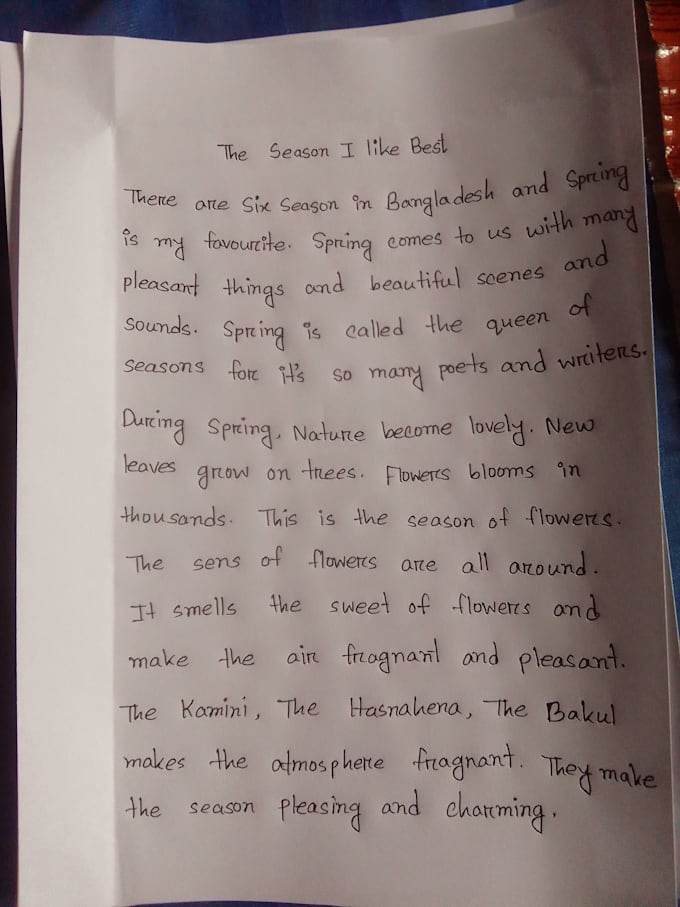 The Season I like Best
There are Six Season in Bangladesh and Spring
is my favourite. Spring comes to us with many
pleasant things and beautiful scenes and
sounds. Spring is called the queen of
seasons for it's so many poets and writers.
During Spring, Nature become lovely. New
leaves grow on trees. Flowers blooms in
thousands. This is the season of flowers.
The sens of flowers are all around.
It smells the sweet of flowers and
make the air fragnant and pleasant.
The Kamini, The Hasnahena, The Bakul
makes the atmosphere fragnant. They make
the season pleasing and charming.